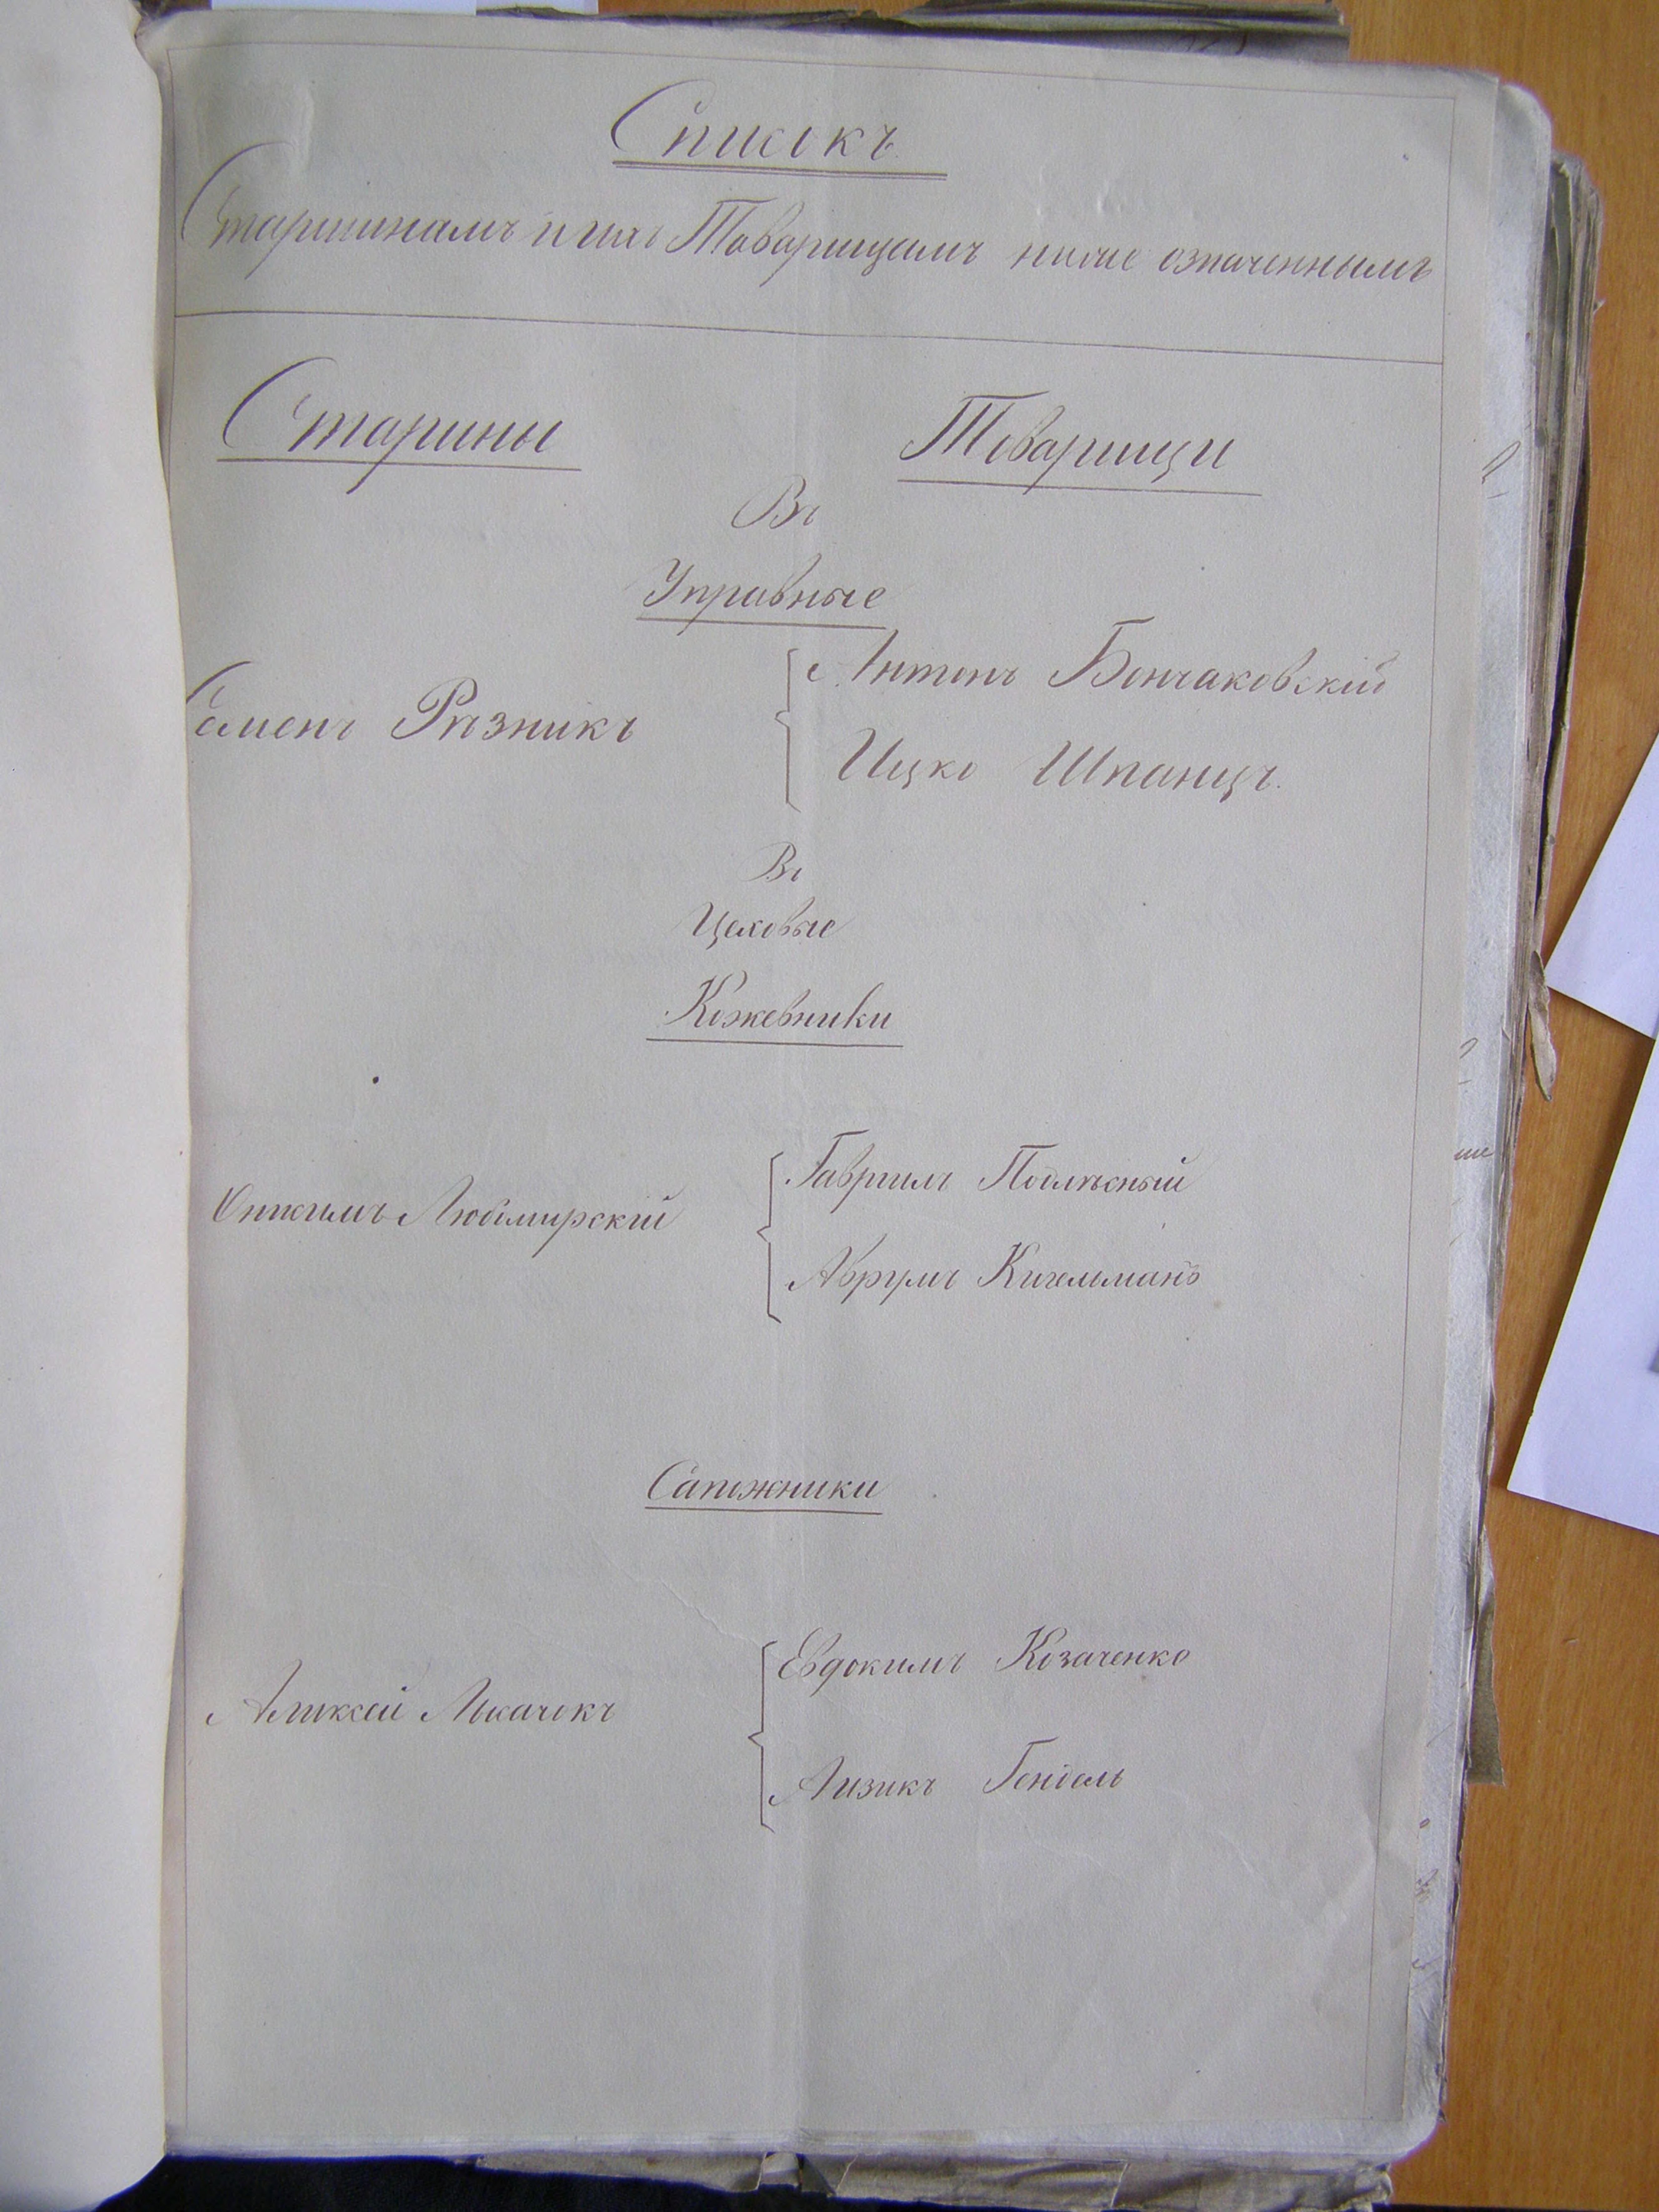 Списокъ
Старшинамъ и ихъ Товарищамъ ниже означеннымъ
Старшины
Товарищи
Въ
Управные
Семенъ Рѣзникъ
Антонъ Бончаковскій
Ицко Шпанцъ.
Въ
Цеховые
Кожевники
Онисимъ Любомирскій
Гаврилъ Подлѣсный
Абрумъ Кигельманъ
Сапожники
Алексей
Евдокимъ Козаченко
Айзикъ Гендель